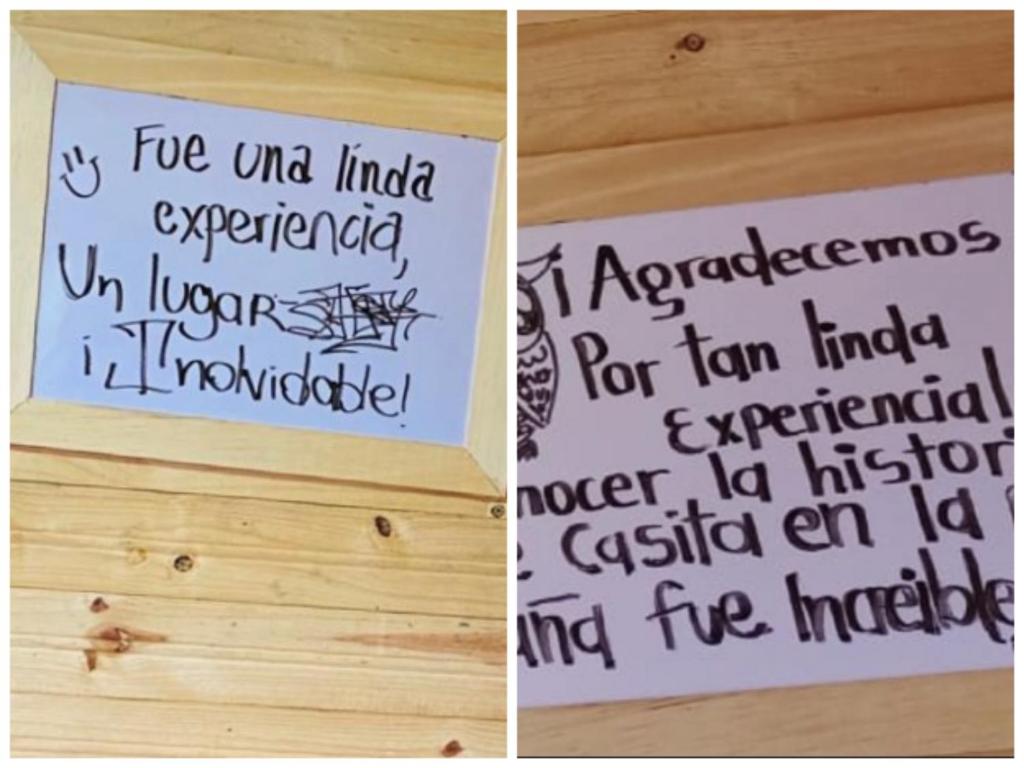 Fue una linda
experiencia,
Un lugar
¡Inolvidable!
¡Agradecemos
Por tan linda
Experiencia!
nocer la histor
Casita en la
aña fue Increible